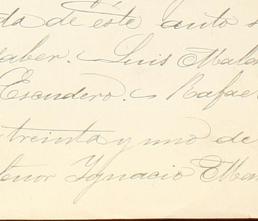 da de este auto s
saber. Luis Mala
Escudero. Rafae
treinta y uno de
señor Ygnacio Men